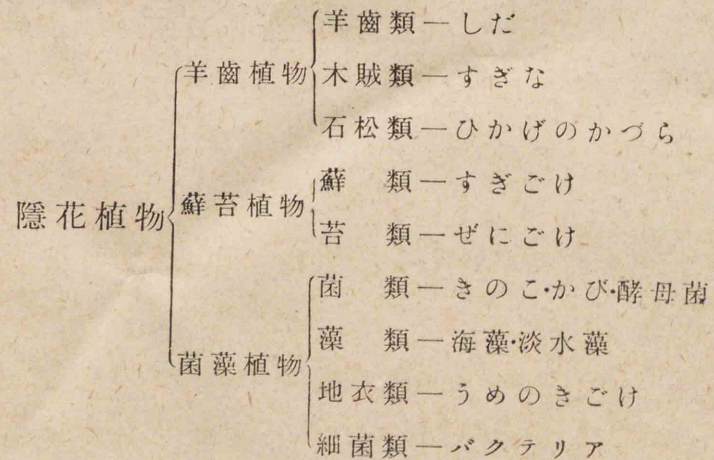 隱花植物
羊齒植物
羊齒類—しだ
木賊類—すぎな
石松類—ひかげのかづら
蘚苔植物
蘚類—すぎごけ
苔類—ぜにごけ
菌藻植物
菌類—きのこ·かび·酵母菌
藻類—海藻·淡水藻
地衣類—うめのきごけ
細菌類—バクテリア